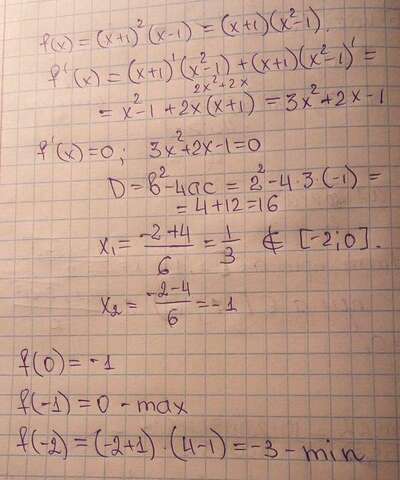 f(x) = (x+1)²(x-1) = (x+1)(x²-1).
f'(x) = (x+1)'(x²-1) + (x+1)(x²-1)' =
2x²+2x
= x²-1 + 2x(x+1) = 3x²+2x-1
f'(x)=0; 3x²+2x-1=0
D = b²-4ac = 2²-4·3·(-1) =
= 4+12 = 16
x₁ = (-2+4)/6 = 1/3 ∉ [-2;0].
x₂ = (-2-4)/6 = -1
f(0) = -1
f(-1) = 0 - max
f(-2) = (-2+1)·(4-1) = -3 - min